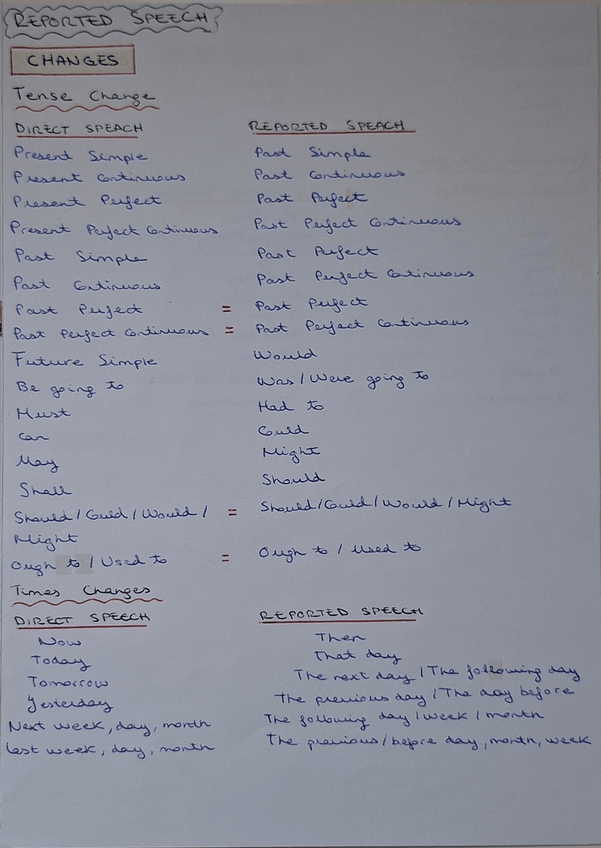 REPORTED SPEECH
CHANGES
Tense Change
DIRECT SPEACH REPORTED SPEACH
Present Simple Past Simple
Present Continuous Past Continuous
Present Perfect Past Perfect
Present Perfect Continuous Past Perfect Continuous
Past Simple Past Perfect
Past Continuous Past Perfect Continuous
Past Perfect = Past Perfect
Past Perfect Continuous = Past Perfect Continuous
Future Simple Would
Be going to Was/Were going to
Must Had to
Can Could
May Might
Shall Should
Should/Could/Would/ = Should/Could/Would/Might
Might
Ough to / Used to = Ough to / Used to
Times Changes
DIRECT SPEECH REPORTED SPEECH
Now Then
Today That day
Tomorrow The next day / The following day
Yesterday The previous day / The day before
Next week, day, month The following day / week / month
last week, day, month The previous/before day, month, week